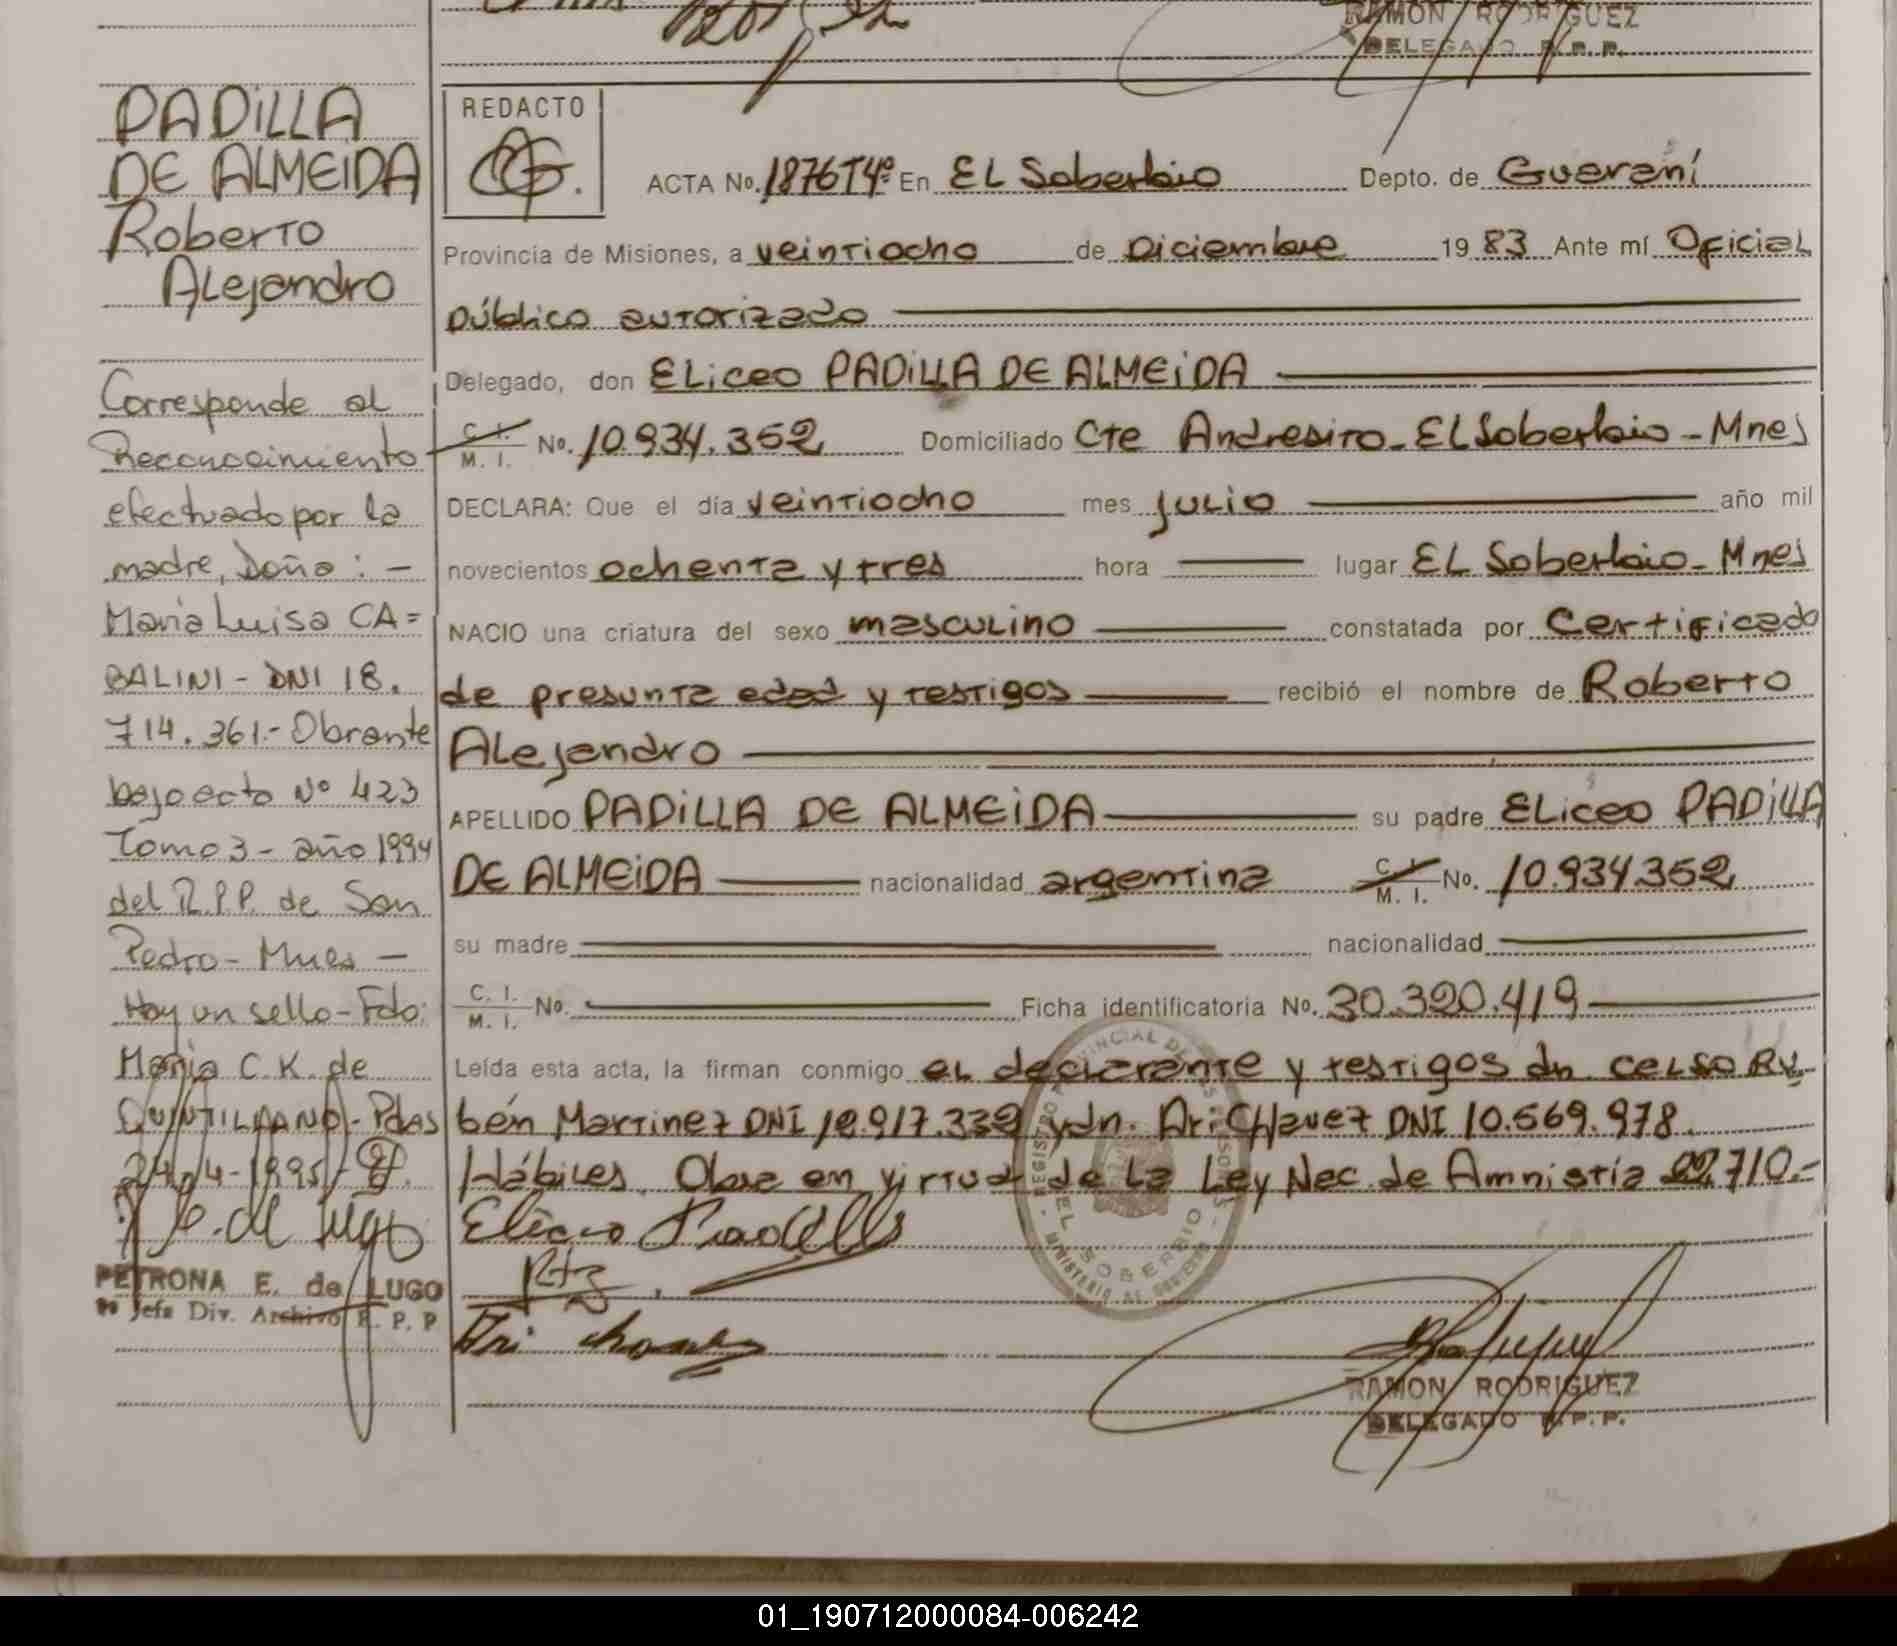 RAMON RODRIGUEZ
DELEGADO R. P. P.
PADILLA
DE ALMEIDA
Roberto
Alejandro
Corresponde al
Reconocimiento
efectuado por la
madre, Doña: -
María Luisa CA=
BALINI - DNI 18.
714.361.- Obrante
bajo acta Nº 423
Tomo 3 - año 1994
del R.P.P. de San
Pedro - Mnes -
Hay un sello - Fdo:
María C. K. de
QUINTILPANO - Pdas
24-4-1995
PETRONA E. de LUGO
Jefa Div. Archivo R. P. P
REDACTO
ACTA No. 1876T4º En EL Soberbio Depto. de Guaraní
Provincia de Misiones, a veintiocho de Diciembre 19 83 Ante mí Oficial
público autorizado
Delegado, don ELiceo PADiLLA DE ALMEiDA
C. I. M. I. No. 10.934.352 Domiciliado Cte Andresito - EL Soberbio - Mnes
DECLARA: Que el día veintiocho mes julio año mil
novecientos ochenta y tres hora lugar EL Soberbio - Mnes
NACIO una criatura del sexo masculino constatada por Certificado
de presunta edad y testigos recibió el nombre de Roberto
Alejandro
APELLIDO PADiLLA DE ALMEiDA su padre ELiceo PADiLLA
DE ALMEiDA nacionalidad argentina C. I. M. I. No. 10.934.352
su madre nacionalidad
C. I. M. I. No. Ficha identificatoria No. 30.320.419
Leída esta acta, la firman conmigo el declarante y testigos dn. Celso Ru-
bén Martinez DNI 12.917.332 y dn. Ari Chavez DNI 10.569.978.
Hábiles. Obra en virtud de la Ley Nac. de Amnistía 22.710.-
Eliceo Padilla
Ari Chavez
REGISTRO PROVINCIAL DE LAS PERSONAS
EL SOBERBIO
MINISTERIO DE GOBIERNO
RAMON RODRIGUEZ
DELEGADO R. P. P.
01_190712000084-006242